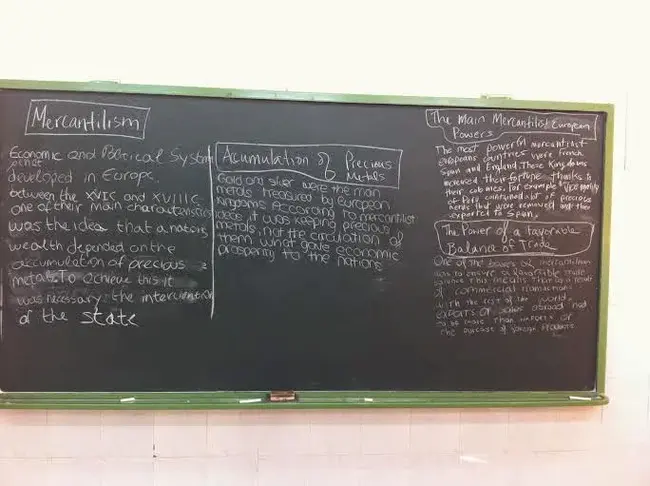 Mercantilism
Economic and Political System
which
developed in Europe
between the XVIC and XVIIIC
one of their main characteristics
was the idea that a nations
wealth depended on the
accumulation of precious
metals. To achieve this it
was necessary the intervention
of the state
Acumulation of Precious
Metals
Gold and silver were the main
metals treasured by european
Kingdoms according to mercantilist
ideas, it was keeping precious
metals, not the circulation of
them what gave economic
prosperity to the nations
The Main Mercantilist European
Powers
The most powerful mercantilist
europeans countries were French,
Spain and England. These Kingdoms
their fortune thanks to
their colonies, For example
of Perú a lot of precious
metals that were removed and then
exported to Spain,
The Power of a Favorable
Balance of Trade
One of the of mercantilism
was to ensure a favorable trade
balance this means that as a result
of commercial transactions
with the rest of the world,
exports or sales abroad had
to be more than imports or
the purchase of foreign products.